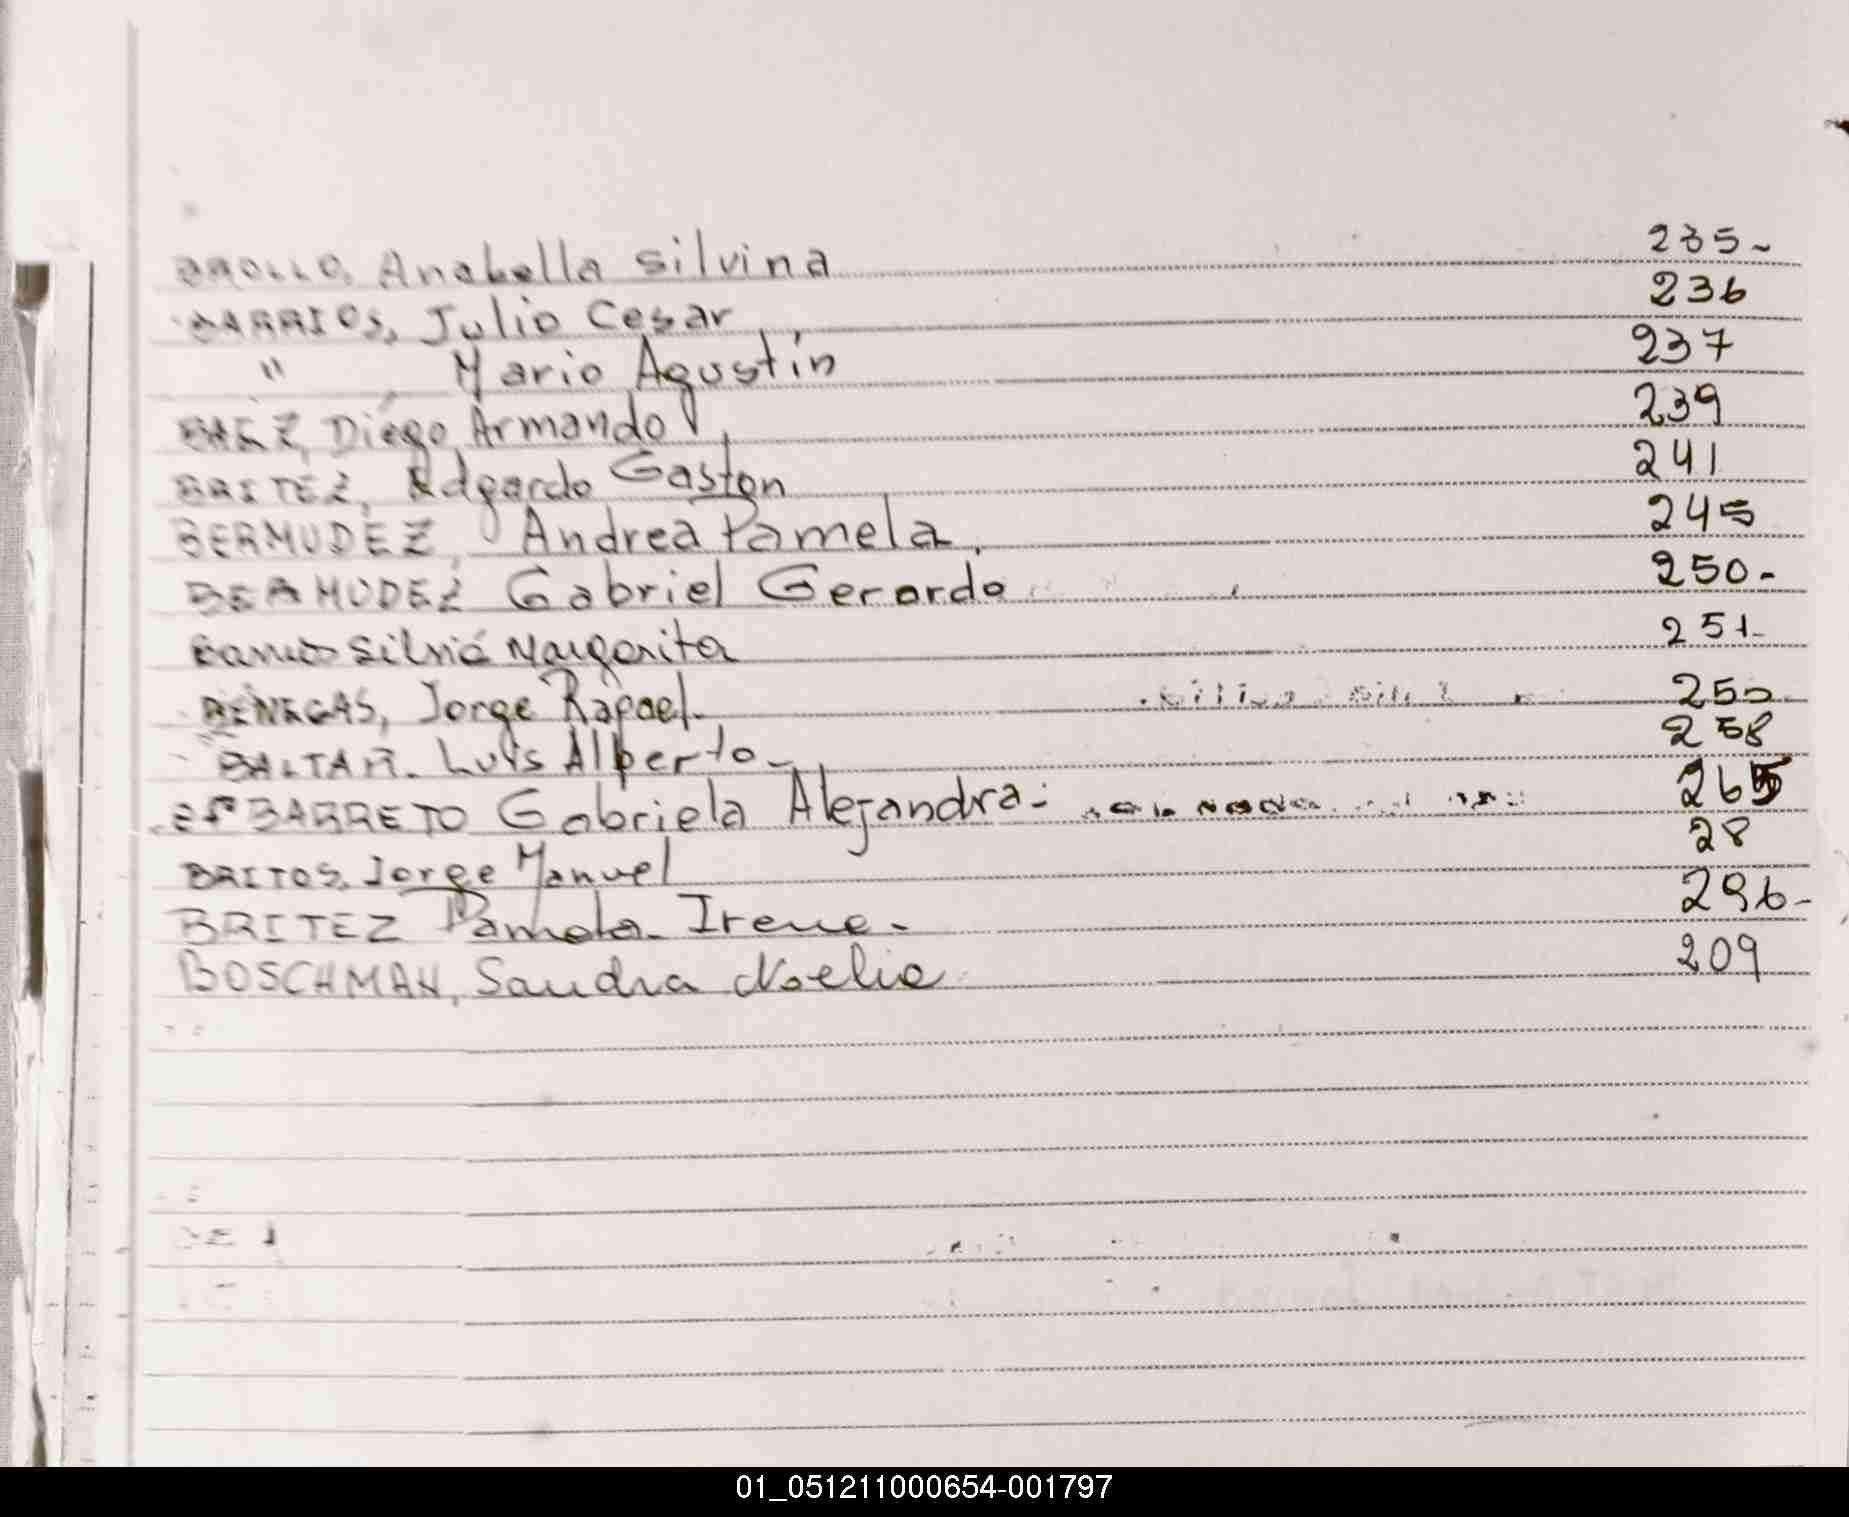 BROLLO, Anabella Silvina 235-
BARRIOS, Julio Cesar 236
" Mario Agustín 237
BAEZ, Diego Armando 239
BRITEZ, Edgardo Gaston 241
BERMUDEZ, Andrea Pamela. 245
BERMUDEZ Gabriel Gerardo 250-
Silvia Margarita 251-
BENEGAS, Jorge Rafael- 255
BALTAR. Luis Alberto- 258
BARRETO Gabriela Alejandra- 265
BRITOS, Jorge Manuel 28
BRITEZ Pamela Irene- 296-
BOSCHMAN, Sandra Noelia 209
01_051211000654-001797